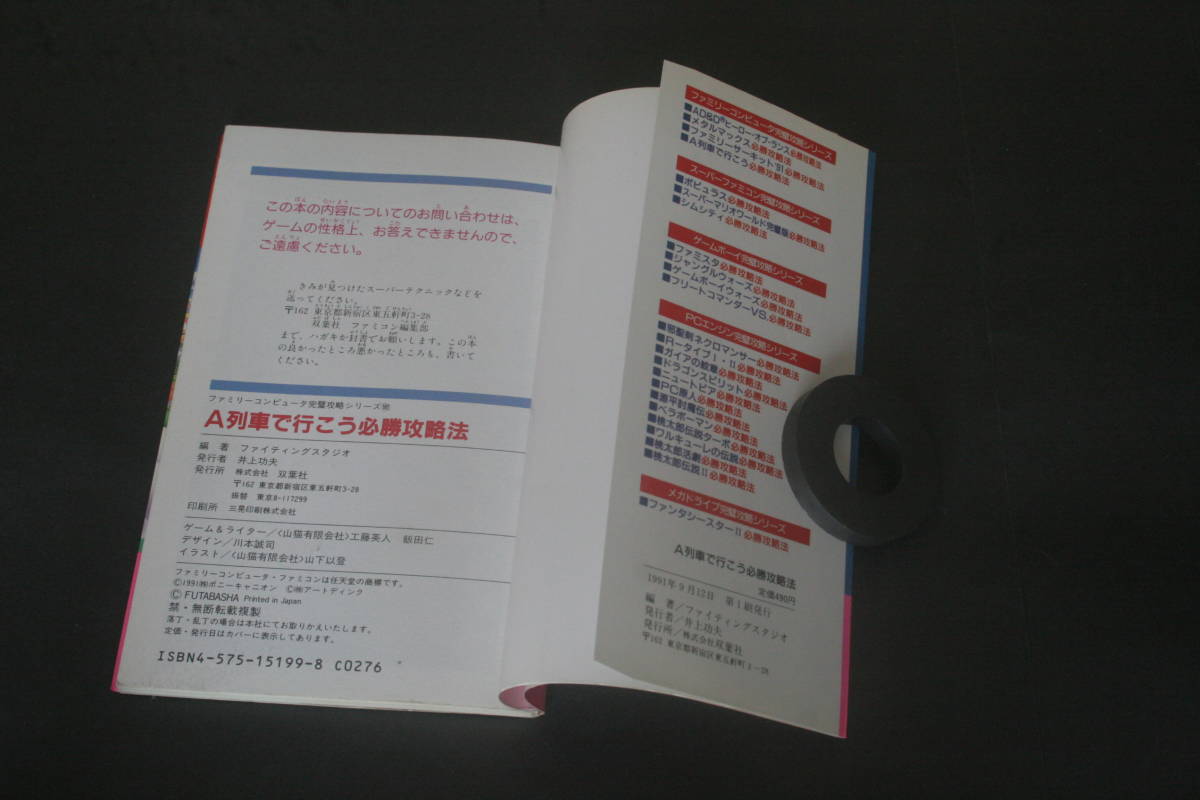 この本の内容についてのお問い合わせは、
ゲームの性格上、お答えできませんので、
ご遠慮ください。
きみが見つけたスーパーテクニックなどを
送ってください。
〒162 東京都新宿区東五軒町3-28
双葉社 ファミコン編集部
まで、ハガキか封書でお願いします。この本
の良かったところ悪かったところも、書いて
ください。
ファミリーコンピュータ完璧攻略シリーズ
A列車で行こう必勝攻略法
編著 ファイティングスタジオ
発行者 井上功夫
発行所 株式会社 双葉社
〒162 東京都新宿区東五軒町3-28
振替 東京8-117299
印刷所 三晃印刷株式会社
ゲーム&ライター/〈山猫有限会社〉工藤英人 飯田仁
デザイン/川本誠司
イラスト/〈山猫有限会社〉山下以登
ファミリーコンピュータ・ファミコンは任天堂の商標です。
©1991㈱ポニーキャニオン ©㈱アートディンク
© FUTABASHA Printed in Japan
禁・無断転載複製
落丁・乱丁の場合は本社にてお取りかえいたします。
定価・発行日はカバーに表示してあります。
ISBN4-575-15199-8 C0276
ファミリーコンピュータ完璧攻略シリーズ
■AD&D®ヒーロー・オブ・ランス必勝攻略法
■メタルマックス必勝攻略法
■ファミリーサーキット'91必勝攻略法
■A列車で行こう必勝攻略法
スーパーファミコン完璧攻略シリーズ
■ポピュラス必勝攻略法
■スーパーマリオワールド完璧版必勝攻略法
■シムシティ必勝攻略法
ゲームボーイ完璧攻略シリーズ
■ファミスタ必勝攻略法
■ジャングルウォーズ必勝攻略法
■ゲームボーイウォーズ必勝攻略法
■フリートコマンダーVS.必勝攻略法
PCエンジン完璧攻略シリーズ
■邪聖剣ネクロマンサー必勝攻略法
■R-タイプI・II必勝攻略法
■ガイアの紋章必勝攻略法
■ドラゴンスピリット必勝攻略法
■ニュートピア必勝攻略法
■PC原人必勝攻略法
■源平討魔伝必勝攻略法
■ベラボーマン必勝攻略法
■桃太郎伝説ターボ必勝攻略法
■ワルキューレの伝説必勝攻略法
■桃太郎活劇必勝攻略法
■桃太郎伝説II必勝攻略法
メガドライブ完璧攻略シリーズ
■ファンタシースターII必勝攻略法
A列車で行こう必勝攻略法
定価490円
1991年9月12日 第1刷発行
編著/ファイティングスタジオ
発行者/井上功夫
発行所/株式会社双葉社
〒162 東京都新宿区東五軒町3-28